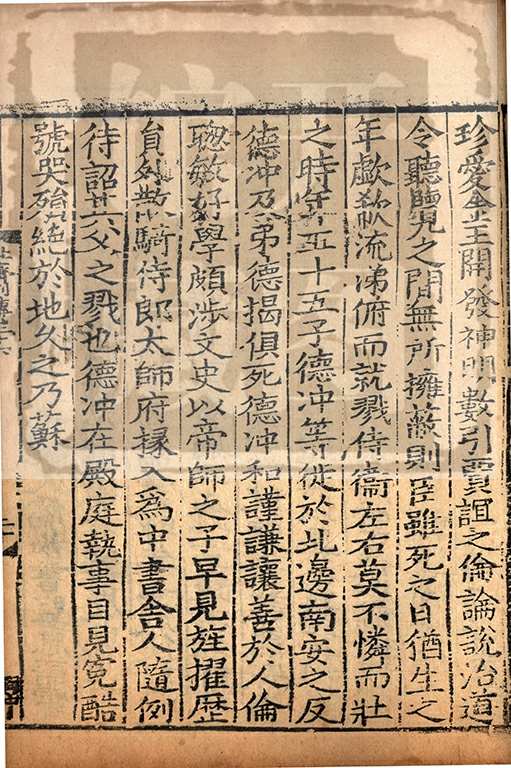 珍愛金玉開發神明數引賈誼之倫論說治道
令聽覽之間無所擁蔽則臣雖死之日猶生之
年歔欷流涕俯而就戮侍衛左右莫不憐而壯
之時年五十五子德沖等徙於北邊南安之反
德沖及弟德揭俱死德沖和謹謙讓善於人倫
聰敏好學頗涉文史以帝師之子早見旌擢歷
員外散騎侍郎太師府掾入為中書舍人隨例
待詔其父之戮也德沖在殿庭執事目見冤酷
號哭殞絕於地久之乃蘇